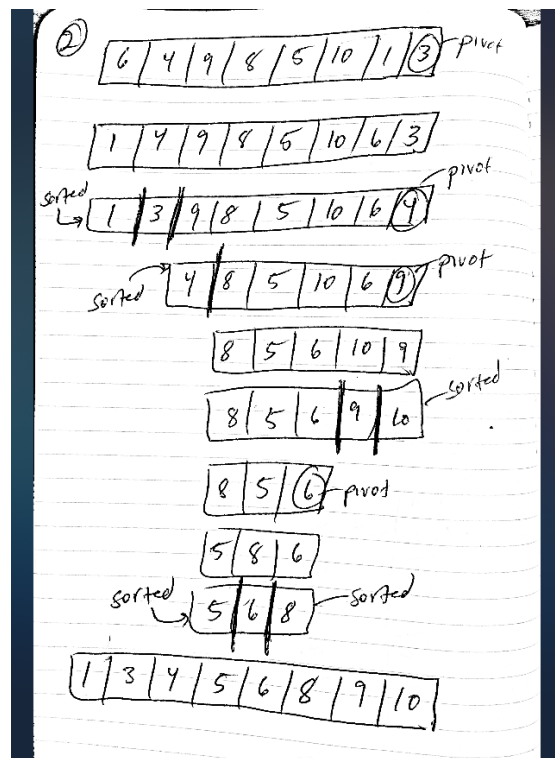 2
6 4 9 8 5 10 1 3 pivot
1 4 9 8 5 10 6 3
sorted 1 3 9 8 5 10 6 4 pivot
sorted 4 8 5 10 6 9 pivot
8 5 6 10 9
8 5 6 9 10 sorted
8 5 6 pivot
5 8 6
sorted 5 6 8 sorted
1 3 4 5 6 8 9 10